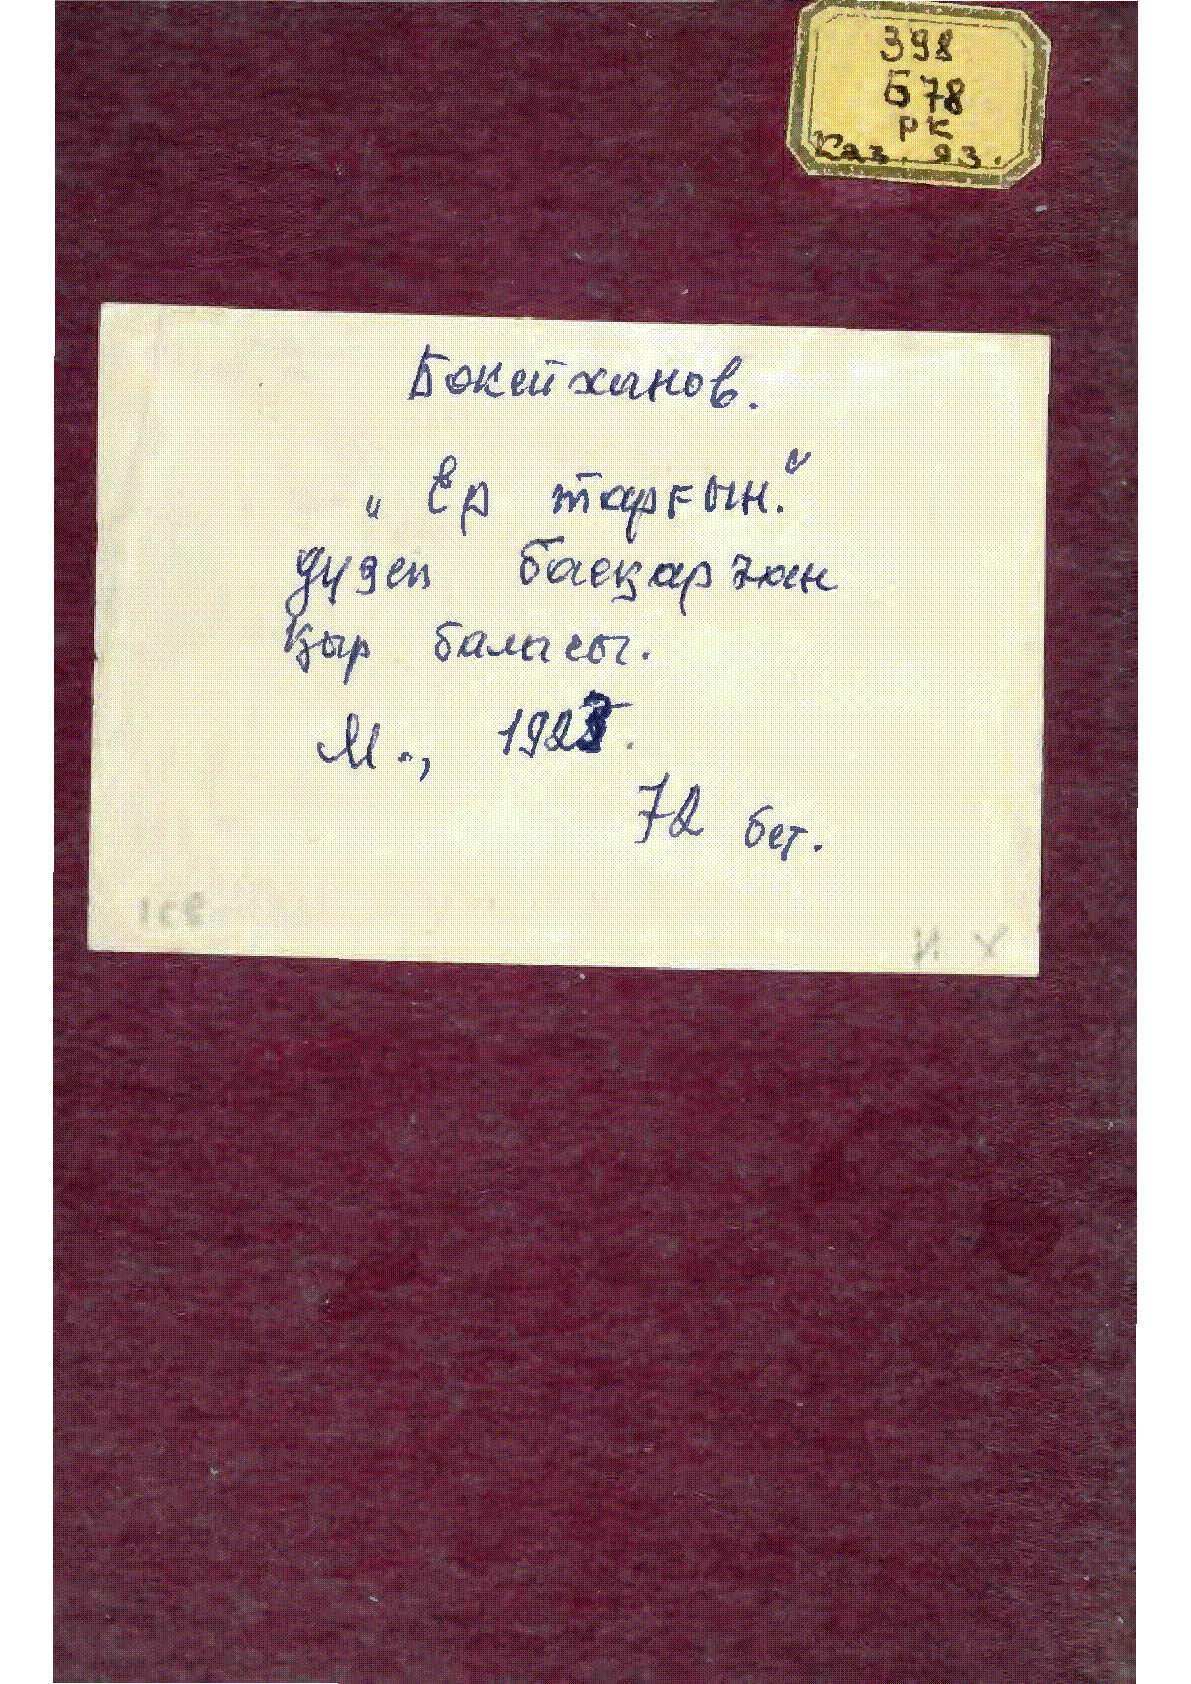 398
Б78
РК
Каз. яз.
Бокейханов.
„Ер тарғын."
Дүзеп басқарған
қыр баласы.
М., 1923.
72 бет.